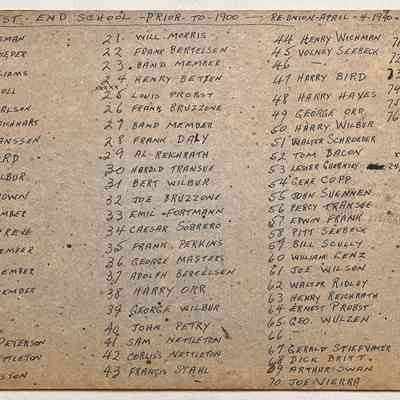 ST. END SCHOOL - PRIOR TO - 1900 - RE-UNION - APRIL - 4 - 1940.
EMAN
OSPER
LIAMS
OLL
ARLSON
ANSSEN
ARD
LBUR
OWN
EMBER
EMBER
EMBER
EMBER
PETERSON
TTLETON
STON
21. WILL MORRIS
22 FRANK BERTELSEN
23. BAND MEMBER
24 HENRY BETTEN
25 LOUIS PROBST
26 FRANK BRUZZONE
27 BAND MEMBER
28 FRANK DALY
29 AL-REICHRATH
30 HAROLD TRANSUE
31 BERT WILBUR
32 JOE BRUZZONE
33 EMIL FORTMANN
34 CAESAR SOBRERO
35 FRANK PERKINS
36 GEORGE MASTERS
37 ADOLPH BERTELSEN
38 HARRY ORR
39 GEORGE WILBUR
40 JOHN PETRY
41 SAM NETTLETON
42 CORLISS NETTLETON
43 FRANCIS STAHL
44 HENRY WICHMAN
45 VOLNEY SEEBECK
46 —
47 HARRY BIRD
48 HARRY HAYES
49 GEORGE ORR
50 HARRY WILBUR
51 WALTER SCHROEDER
52 TOM BACON
53 LESTER
54 GENE COPP
55 JOHN SUENNEN
56 PERCY TRANSUE
57 EDWIN FRANK
58 PITT SEEBECK
59 BILL SCULLY
60 WILLIAM LENZ
61 JOE WILSON
62 WALTER RIDLEY
63 HENRY REICHRATH
64 ERNEST PROBST
65 GEO. WULZEN
66
67 GERALD STIEFVATER
68 DICK BRITT
69 ARTHUR SWAN
70 JOE VIERRA
71
72
73
74
75
76